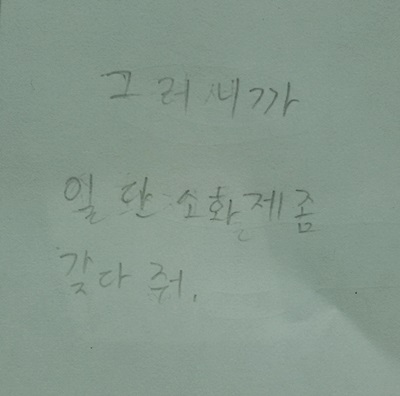 그러니까
일단 소화제좀
갖다 줘.